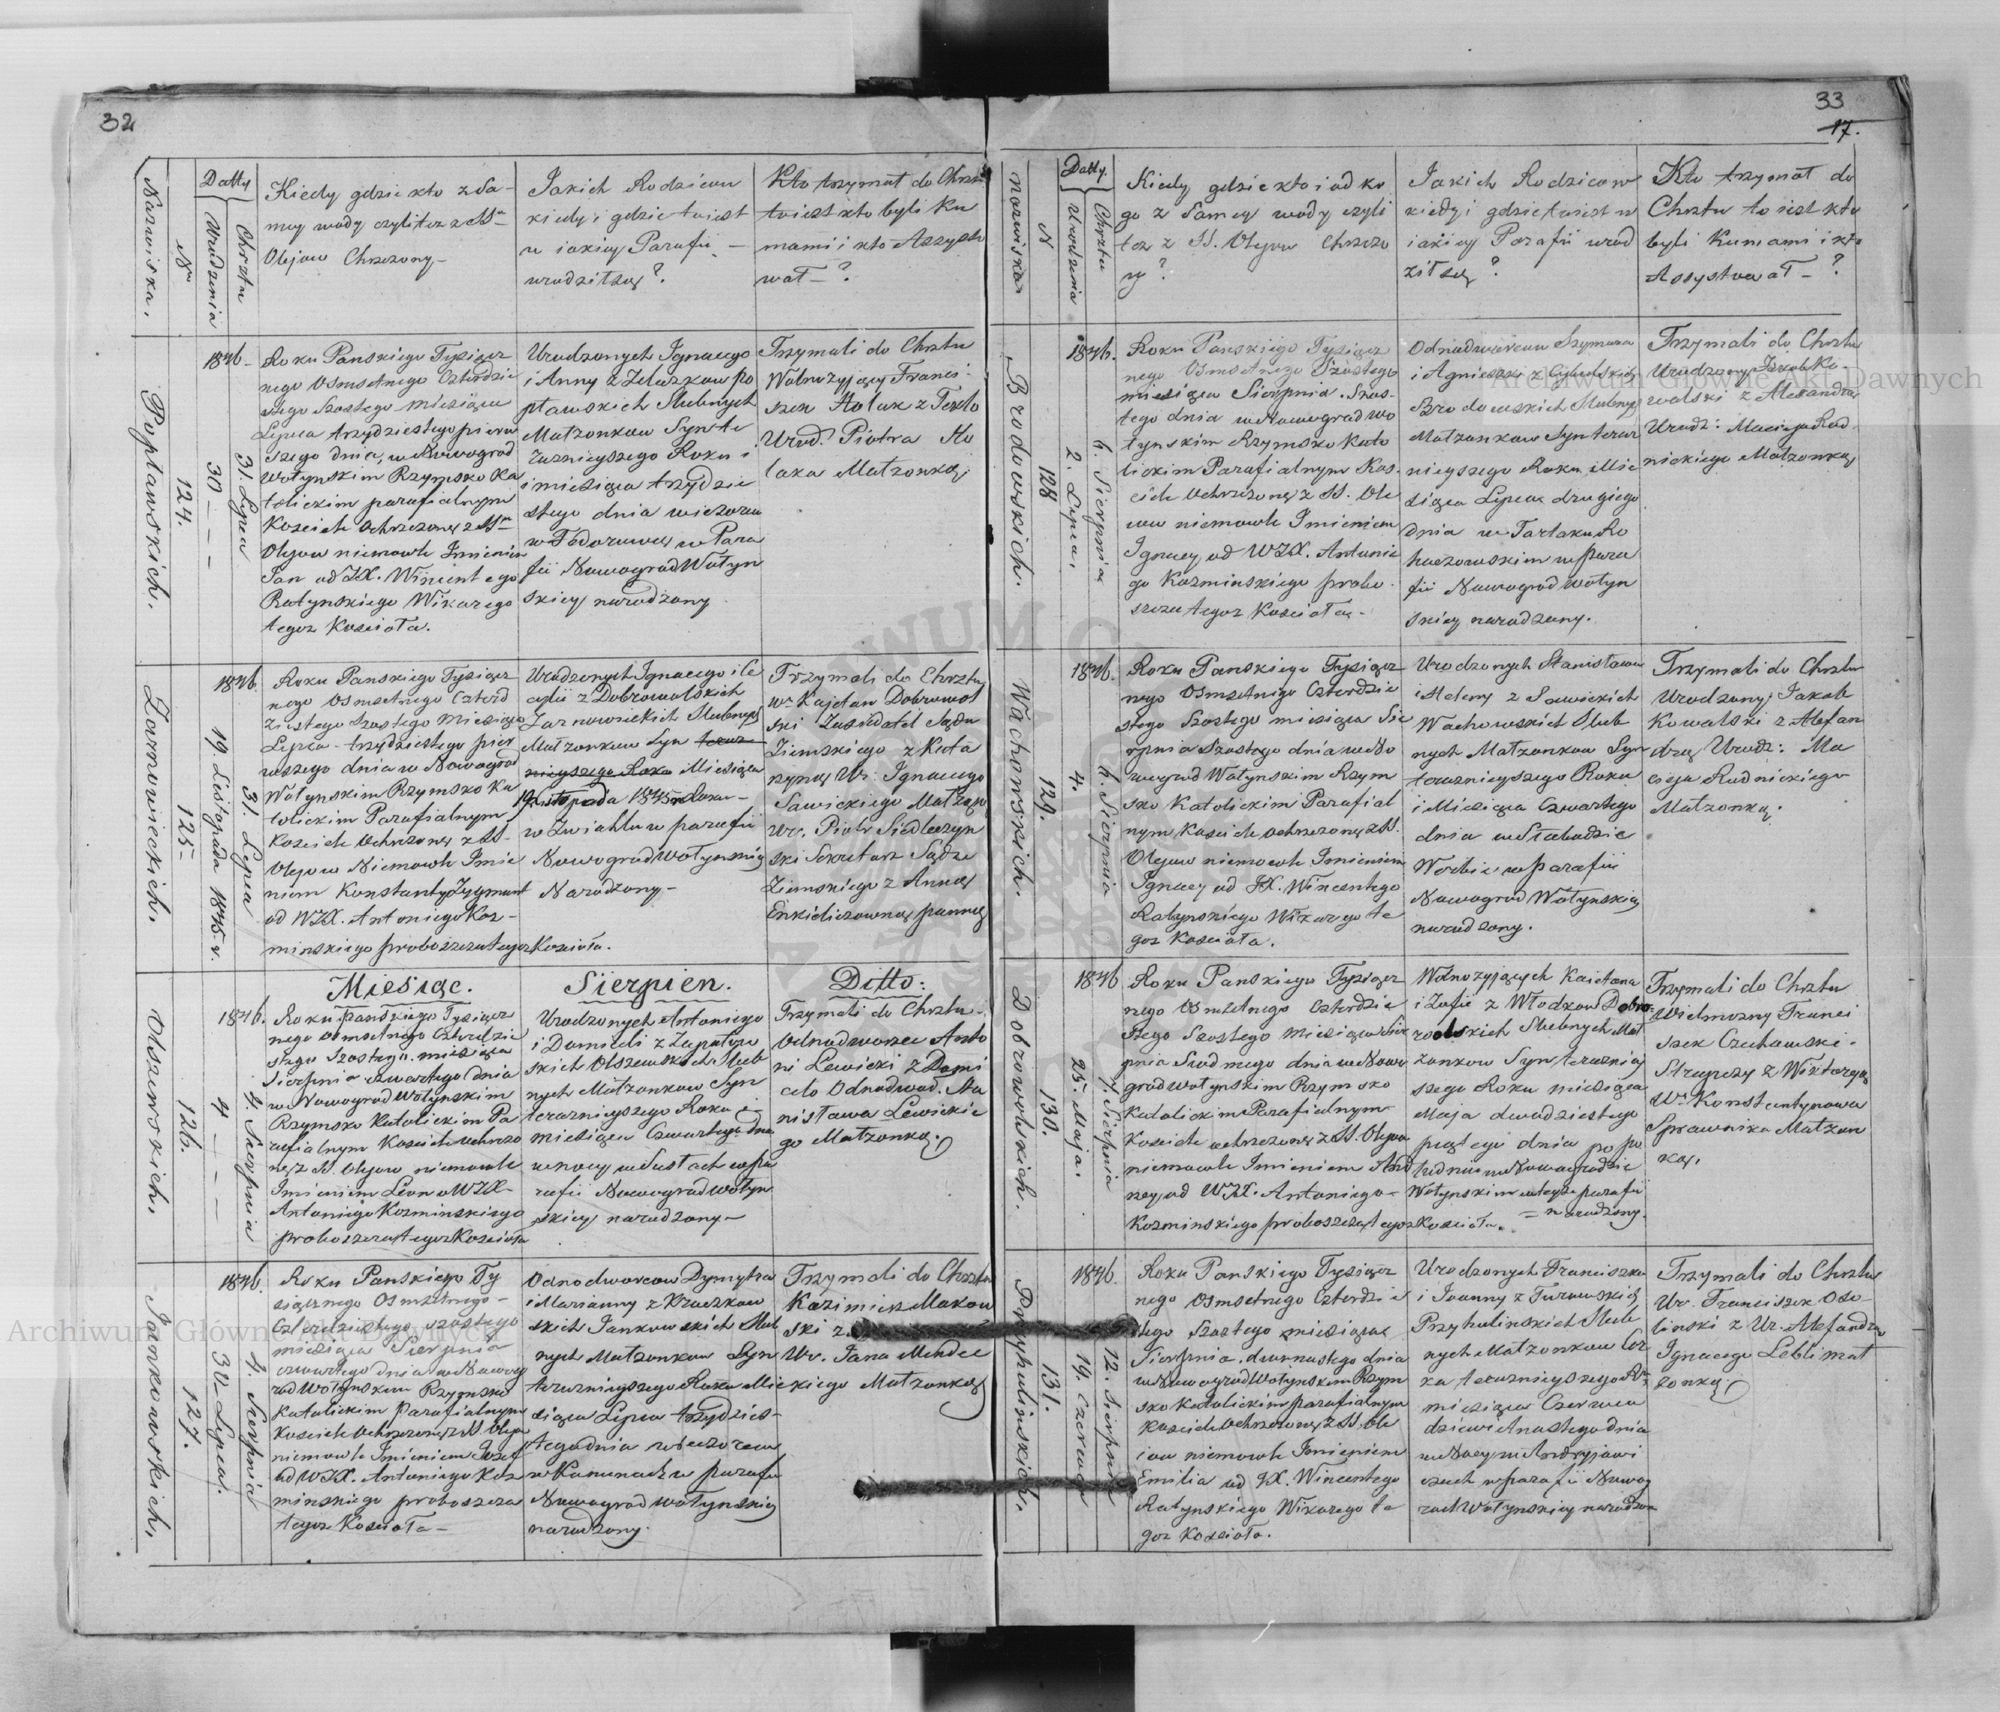 32
Nazwiska.
Nr
Datty
Urodzenia
Chrztu
Kiedy gdzie kto z Sa-
mey wody czyli tez z SSch
Olejow Chrzczony-
Jakich Rodzicow
kiedy i gdzie toiest
w iakiey Parafii -
urodzil się?
Kto trzymał do Chrztu
toiest kto byli Ku
mami i kto Assysto
wał - ?
Popławskich.
124.
1846.
30 - - -
31. Lipca
Roku Panskiego Tysiącz
nego Osmsetnego Czterdzie
stego Szostego miesiąca
Lipca trzydziestego pierw
szego dnia, w Nowogrod
Wołynskim Rzymsko Ka
tolickim parafialnym
Kosciele Ochrzczony z SSch
Olejow niemowle Imieniem
Jan od JX. Wincentego
Ratynskiego Wikarego
tegoz Kosciola.
Urodzonych Ignacego
i Anny z Zelazkow Po
pławskich Slubnych
Małzonkow Syn te
razneyszego Roku i
i miesiąca trzydzie
stego dnia wieczorem
w Fedorowce w Para
fii Nowogrod Wołyn
skiey narodzony.
Trzymali do Chrztu
Wolnozyjący Franci-
szek Holak z Teklo
Urod. Piotra Ho
laka Małzonką.
Zarnowieckich.
125-
1846.
19 Listopada 1845. r.
31. Lipca
Roku Panskiego Tysiącz
nego Osmsetnego Czterd
ziestego Szostego Miesiąca
Lipca - trzydziestego pier
wszego dnia w Nowogrod
Wołynskim Rzymsko Ka
tolickim Parafialnym
Kosciele Ochrzczony z SS-
Olejow Niemowle Imie
niem Konstanty Zygmunt
od WJX. Antoniego Koz-
minskiego proboszcza tegoz Kosciola.
Urodzonych Ignacego i Ce
cylii z Dobrowolskich
Zarnowieckich Slubnych
Małzonkow Syn teraz-
nieyszego Roku Miesiąca
19 Listopada 1845 Roku-
w Zwiahlu w parafii
Nowogrod Wołynskiey
Narodzony-
Trzymali do Chrztu
Wr. Kajetan Dobrowol
ski Zasidatel Sądu
Ziemskiego z Kata
rzyną Ur. Ignacego
Sawickiego Małzon
Wr. Piotr Siedleczyn
ski Sekretarz Sądu
Ziemskiego z Anną
panną
Miesiąc. Sierpien. Ditto:
Olszewskich.
126.
1846.
4 - - -
4. Sierpnia
Roku panskiego Tysiącz
nego Osmsetnego Czterdzie
stego Szostego. miesiąca
Sierpnia czwartego dnia
w Nowogrod Wołynskim
Rzymsko Katolickim Pa
rafialnym Kosciele ochrzczo
ney z SS. Olejow niemowle
Imieniem Leon od WJX-
Antoniego Kozminskiego
proboszcza tegoz Kosciola
Urodzonych Antoniego
i Domicelli z Łapatyn
skich Olszewskich Slub
nych Małzonkow Syn
teraznieyszego Roku i
miesiąca Czwartego dnia
w nocy w Sustach w pa
rafii Nowogrod Wołyn
skiey narodzony-
Trzymali do Chrztu-
Odnodworzec Anto
ni Lewicki z Domi
celo Odnodwod. Sta
nisława Lewickie
go Małzonką.
Jankowskich.
127.
1846.
30 - Lipca.
4. Sierpnia
Roku Panskiego Ty
siącznego Osmsetnego-
Czterdziestego szostego
miesiąca Sierpnia
czwartego dnia w Nowog
rod Wołynskim Rzymsko
Katolickim Parafialnym
Kosciele Ochrzczony z SS. Olejow
niemowle Imieniem Jozef
od WJX. Antoniego Koz
minskiego proboszcza
tegoz Kosciola-
Odnodworcow Dymytra
i Maryanny z Kraczkow
skich Jankowskich Slub
nych Małzonkow Syn
teraznieyszego Roku Mie
siąca Lipca trzydzies-
tego dnia wieczorem
w Kanunach w parafii
Nowogrod Wołynskiey
narodzony.
Trzymali do Chrztu
Kazimierz Makow
ski z
Ur. Jana Mendec
kiego Małzonką
33
17.
Nazwiska
N
Datty.
Urodzenia
Chrztu
Kiedy gdzie kto i od ko
go z Samey wody czyli
tez z SS. Olejow Chrzczo
ny?
Jakich Rodzicow
kiedy i gdzie toiest w
iakiey Parafii urod
ził się?
Kto trzymał do
Chrztu to iest kto
byli Kumami i kto
Assystował - ?
Brodowskich.
128
1846.
2. Lipca.
6. Sierpnia
Roku Panskiego Tysiącz
nego Osmsetnego Szostego
miesiąca Sierpnia. Szos-
tego dnia w Nowogrod Wo
łynskim Rzymsko Kato
lickim Parafialnym Kos-
ciele Ochrzczony z SS. Ole
iow niemowle Imieniem
Ignacy od WJX. Antonie
go Kozminskiego probo-
szcza tegoz Kosciola-
Odnodworcow Szymona
i Agnieszki z
Brodowskich Slubnych
Małzonkow Syn teraz
nieyszego Roku Mie
siąca Lipca drugiego
dnia w Tartaku Ro
haczowskim w para
fii Nowogrod Wołyn
skiey narodzony.
Trzymali do Chrztu
Urodzony Jakob Ko-
walski z Alexandrą
Urodz: Macieja Rud-
nickiego Małzonką
Wachowskich.
129.
1846.
4.
6. Sierpnia
Roku Panskiego Tysiącz
nego Osmsetnego Czterdzie
stego Szostego miesiąca Sie
rpnia Szostego dnia w No
wogrod Wołynskim Rzym
sko Katolickim Parafial
nym Kosciele ochrzczony z SS.
Olejow niemowle Imieniem
Ignacy od JX. Wincentego
Ratynskiego Wikarego te
goz Kosciola.
Urodzonych Stanisława
i Heleny z Sawickich
Wachowskich Slub
nych Małzonkow Syn
teraznieyszego Roku
i Miesiąca Czwartego
dnia w Słobodzie
w parafii
Nowogrod Wołynskiey
narodzony.
Trzymali do Chrztu
Urodzony Jakob
Kowalski z Alexan
drą Urodz: Ma
cieja Rudnickiego
Małzonką.
Dobrowolskich.
130.
1846
25. Maja.
7 Sierpnia
Roku Panskiego Tysiącz
nego Osmsetnego Czterdzie
stego Szostego Miesiąca Sier
pnia Siodmego dnia w Nowo
grod Wołynskim Rzymsko
Katolickim Parafialnym-
Kosciele ochrzczony z SS. Olejow
niemowle Imieniem And
rzey, od WJX. Antoniego-
Kozminskiego proboszcza tegoz Kosciola.
Wolnozyjących Kaietana
i Zofii z Włodkow Dobro
wolskich Slubnych Mał
zonkow Syn teraznieyj
szego Roku miesiąca
Maja dwudziestego
piątego dnia po po
ludniu w Nowogrodzie
Wołynskim w teyze parafii
= narodzony.
Trzymali do Chrztu
Wielmozny Franci
szek Czechowski-
Strapczy z Wiktoryą
Wr Konstantynowa
Sprawnika Małzon
ką.
Przyhulinskich.
131.
1846.
19. Czerwca
12. Sierpnia
Roku Panskiego Tysiącz
nego Osmsetnego Czterdzie
stego Szostego miesiąca
Sierpnia. dwunastego dnia
w Nowogrod Wołynskim Rzym
sko Katolickim parafialnym
Kosciele Ochrzczony z SS. Ole
iow niemowle Imieniem
Emilia od JX. Wincentego
Ratynskiego Wikarego te
goz Kosciola.
Urodzonych Franciszka
i Joanny z Turowskich
Przyhulinskich Slub
nych Małzonkow Cor
ka teraznieyszego Ro
miesiąca Czerwca
dziewiętnastego dnia
w Nocy w Andryjowi
czach w parafii Nowog
rod Wołynskiey narodzona
Trzymali do Chrztu
Ur. Franciszek Oso-
linski z Ur. Alexandrą
Ignacego Małz
zonką.
Archiwum Główne Akt Dawnych
Archiwum Główne Akt Dawnych